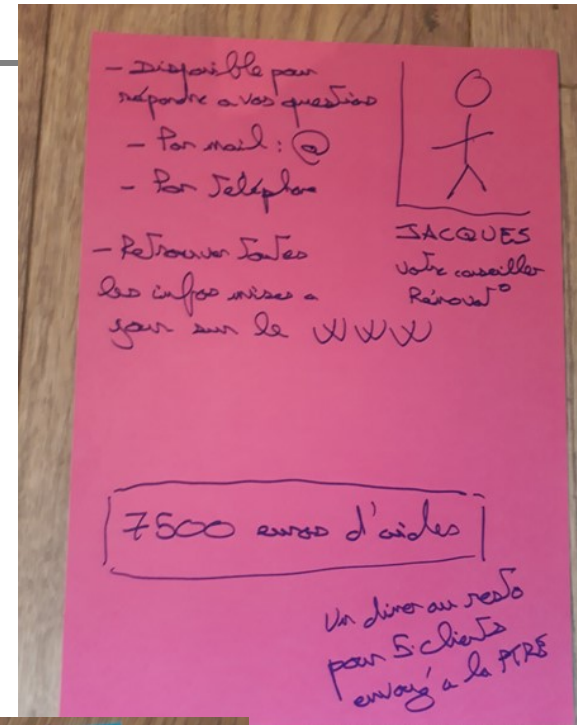 - Disponible pour
répondre a vos questions
- Par mail : @
- Par Téléphone
- Retrouver Toutes
les infos mises a
jour sur le WWW
JACQUES
Votre conseiller
Rénovat°
7500 euros d'aides
Un diner au resto
pour 5 clients
envoyé a la PTRE